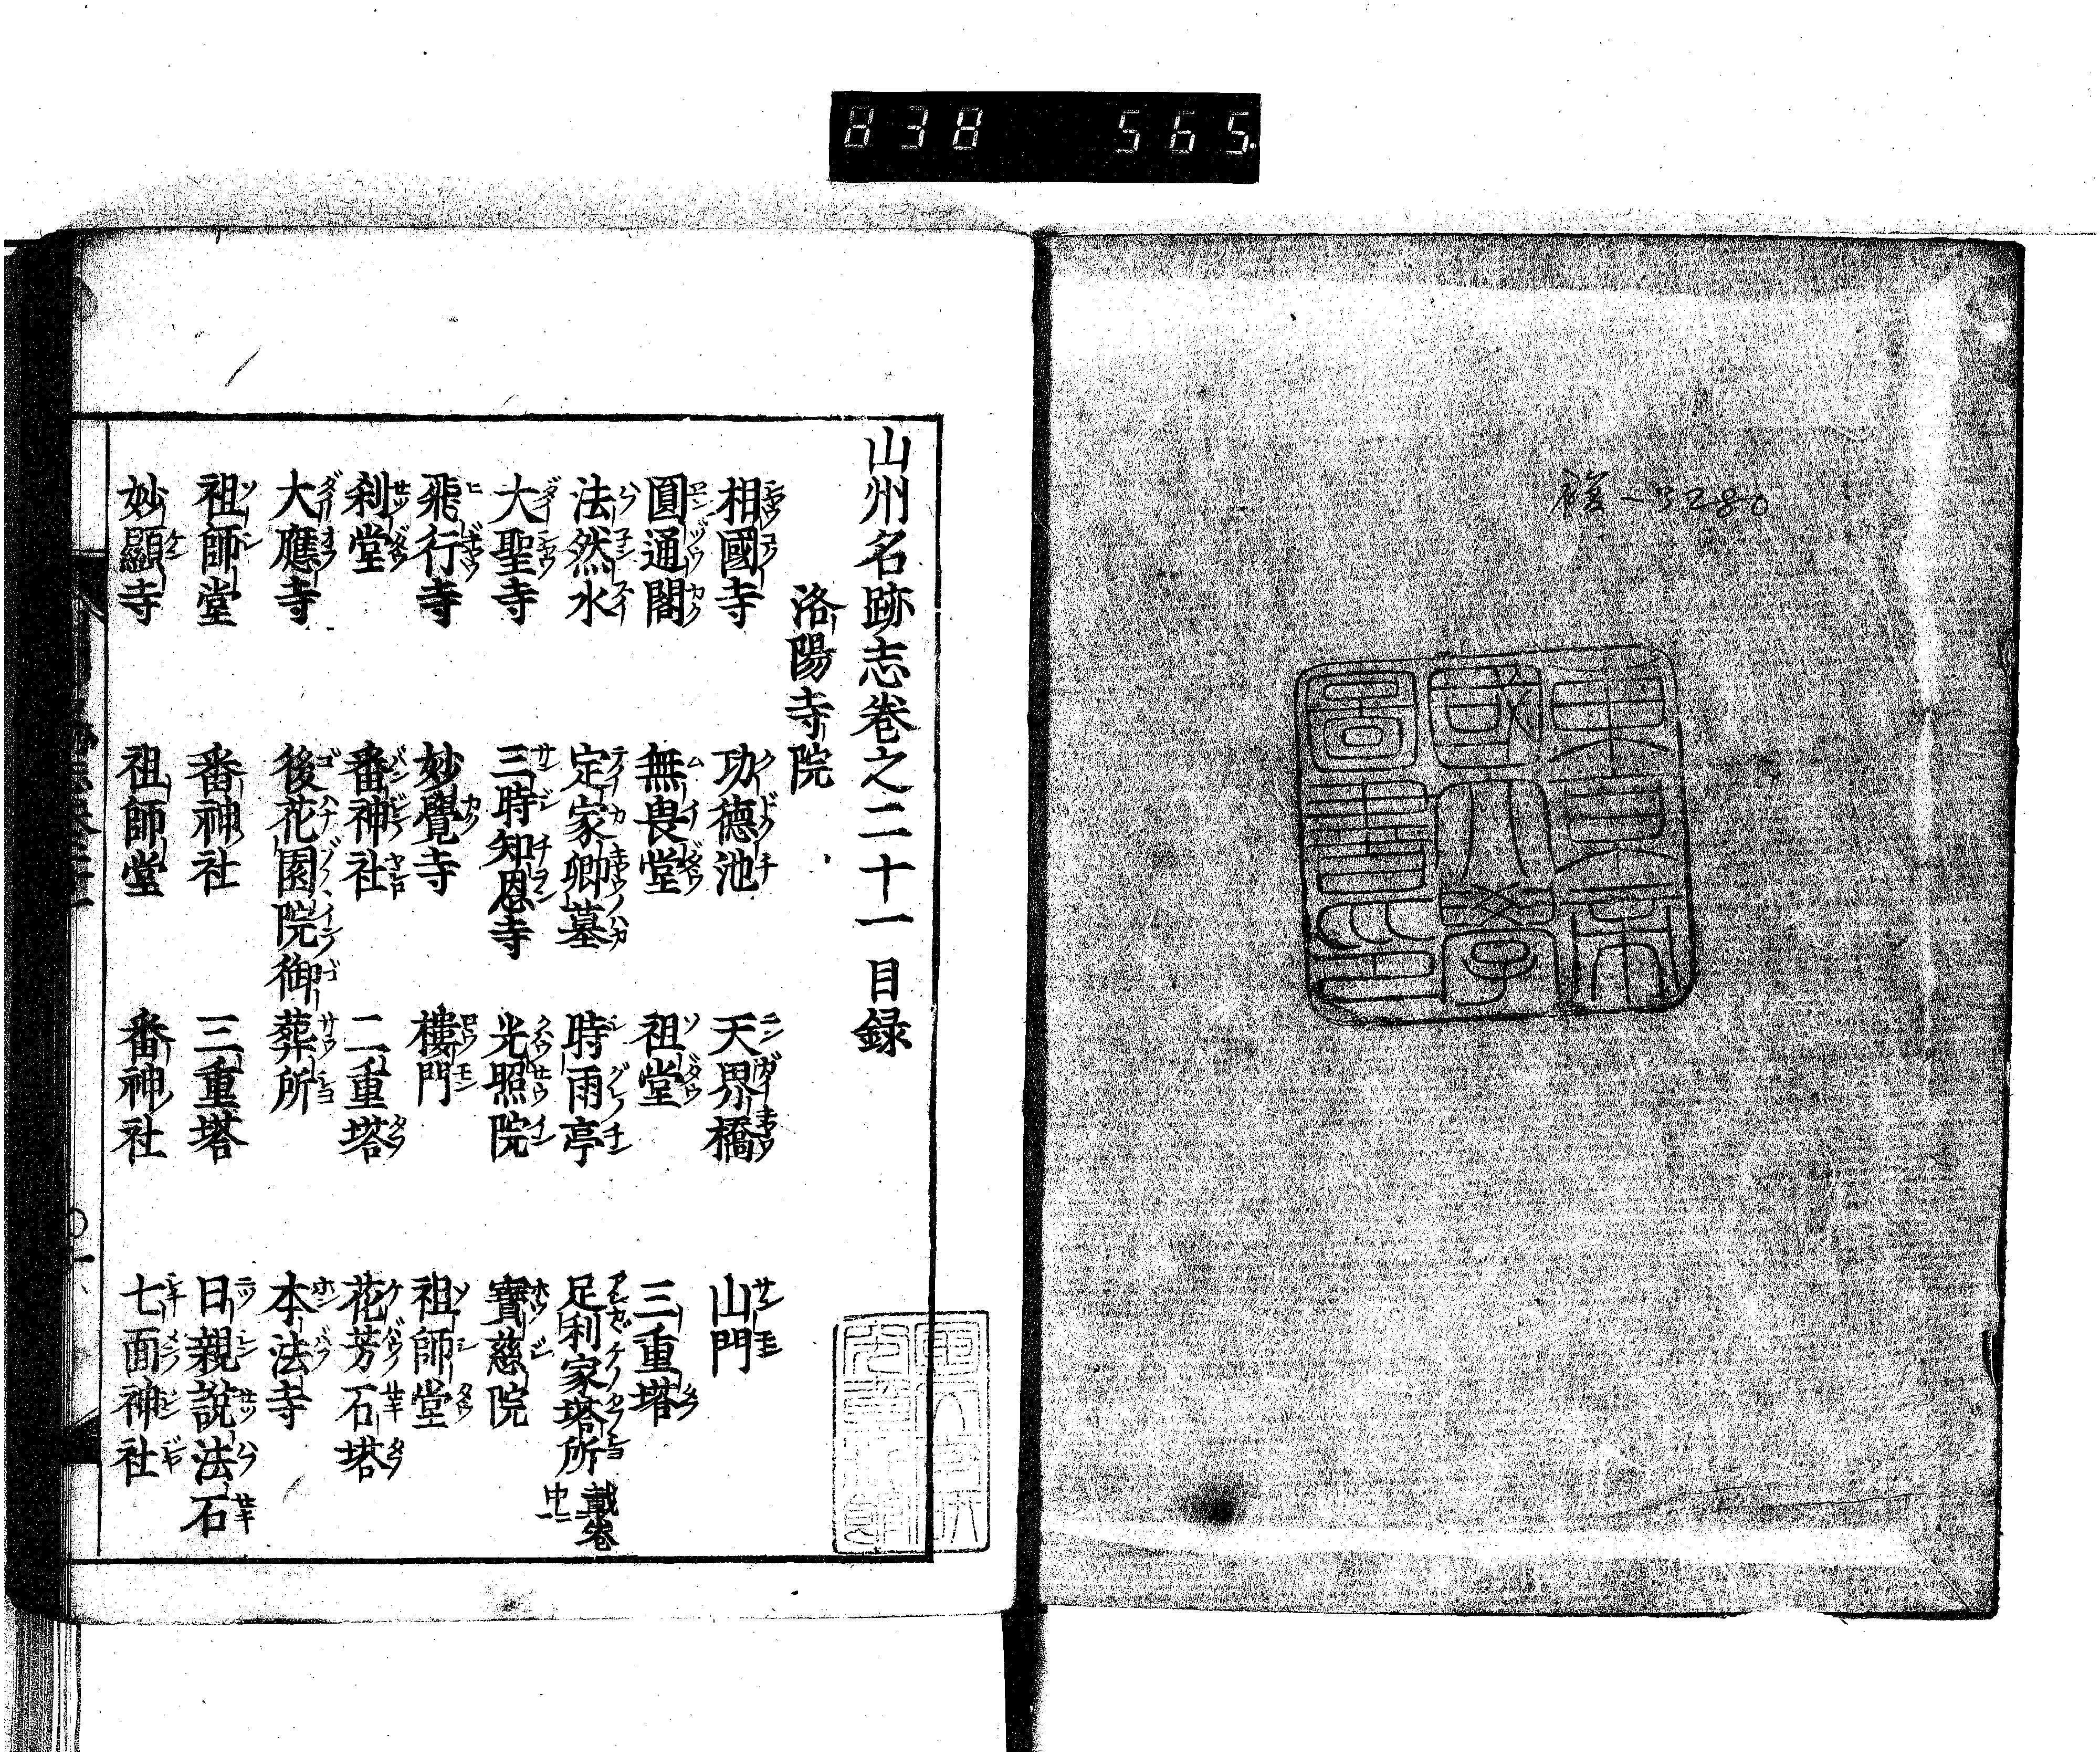 838 565
複-3280
東京帝
國大學
圖書之印
山州名跡志卷之二十一目録
洛陽寺院
相國寺 功德池 天界橋 山門
圓通閣 無畏堂 祖堂 三重塔
法然水 定家卿墓 時雨亭 足利家塔所 載卷中
大聖寺 三時知恩寺 光照院 寶慈院
飛行寺 妙覺寺 樓門 祖師堂
刹堂 番神社 二重塔 花芳石塔
大應寺 後花園院御葬所 本法寺
祖師堂 番神社 三重塔 日親說法石
妙顯寺 祖師堂 番神社 七面神社